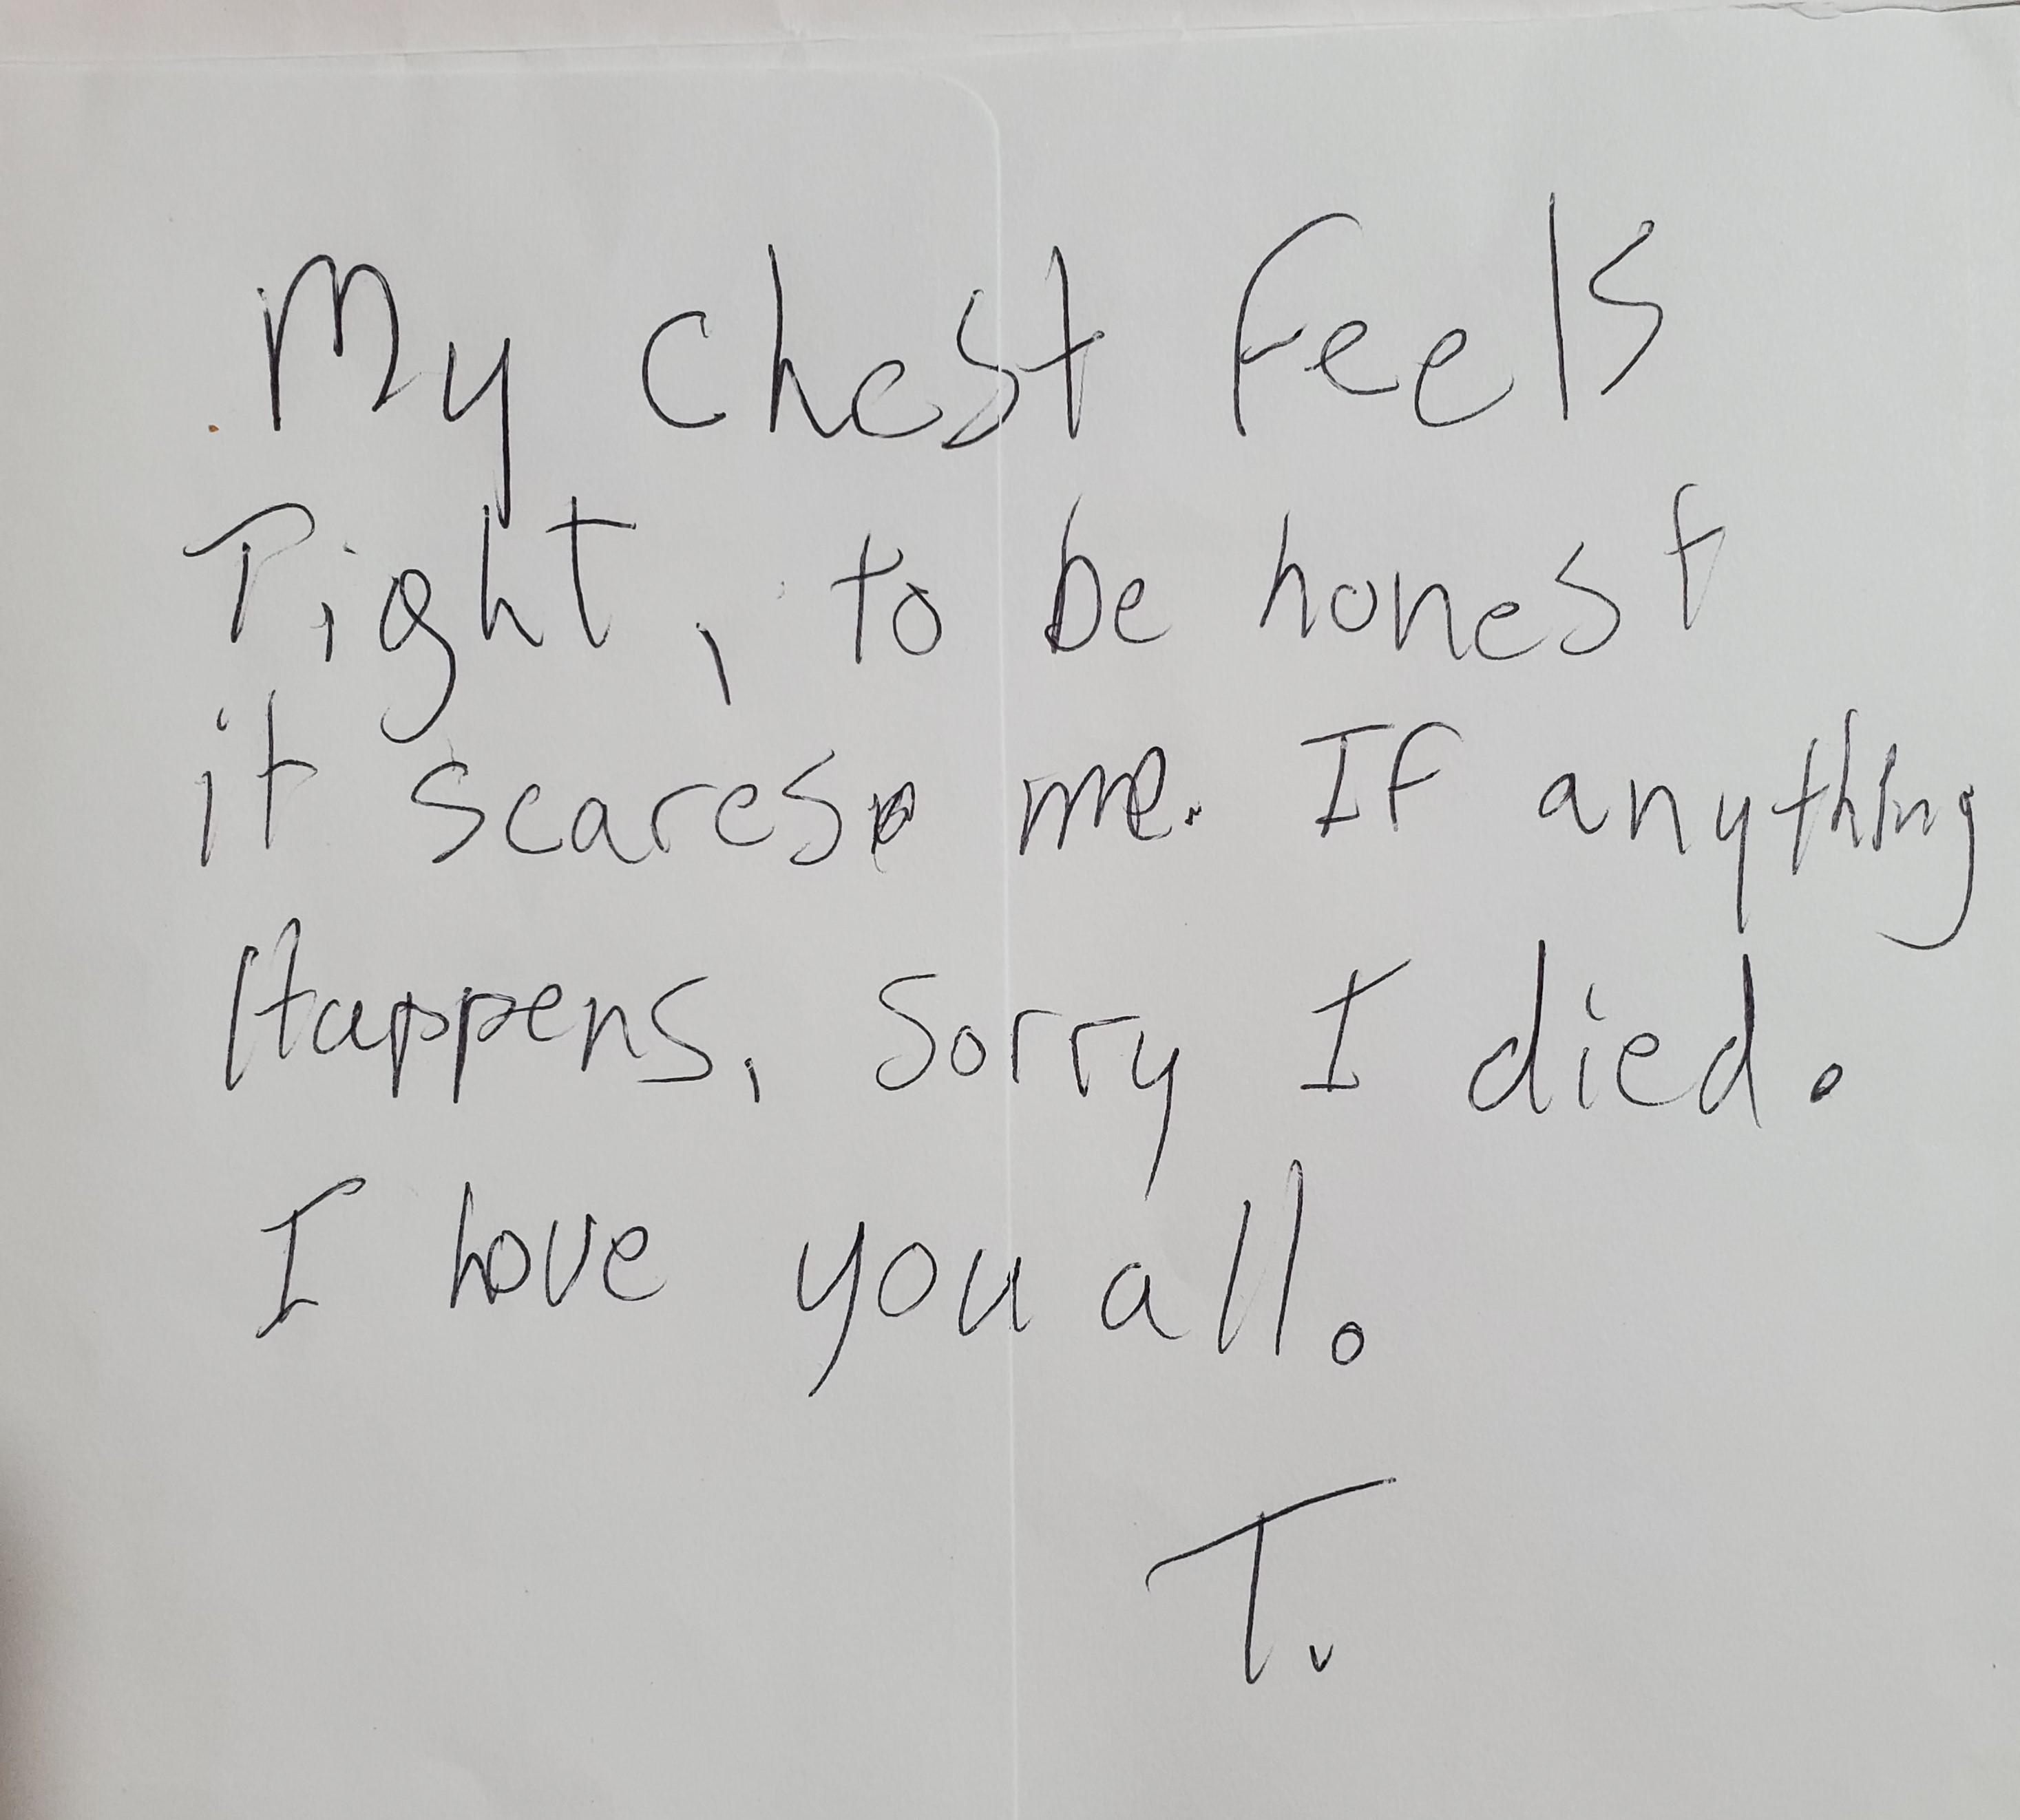 My chest Feels
Tight, to be honest
it scares me. If anything
Happens, Sorry I died.
I love you all.
T.